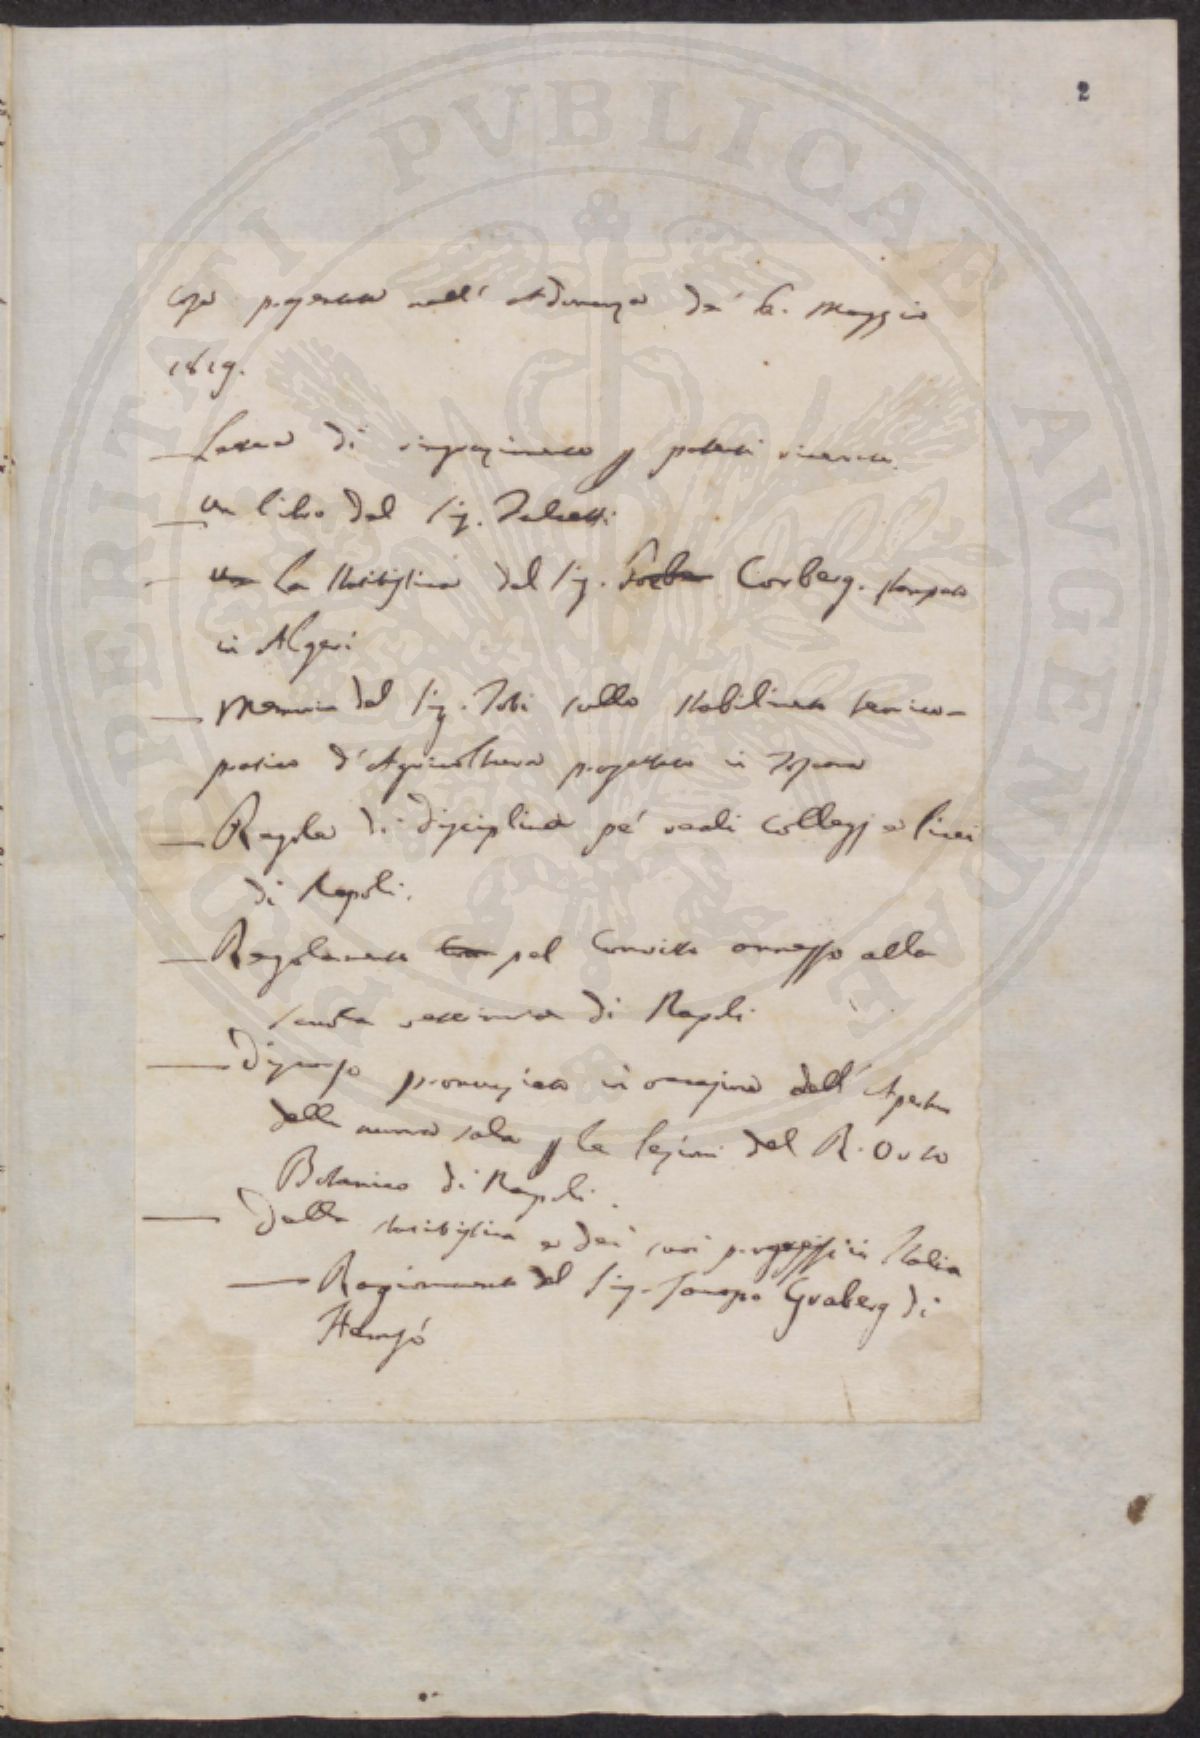 2
Cose presentate nell' Adunanza de' 6. Maggio
1819.
— Lettera di ringraziamento p patente ricevuta.
— Un libro del Sig.
— Un La statistica del Sig. Corberg. stampata
in Algeri
— Memoria del Sig. sullo stabilimento teorico-
pratico d'Agricoltura progettato in Toscana
— Regole di disciplina pe' reali collegj e licei
di Napoli.
— Regolamento pel Convitto annesso alla
scuola veterinaria di Napoli
— Discorso pronunziato in occasione dell' Apertura
della nuova sala p le lezioni del R. Orto
Botanico di Napoli.
— Della statistica e dei suoi progressi in Italia
— Ragionamento del Sig. Jacopo Graberg di
Hemsó
PROSPERITATI PVBLICAE AVGENDAE